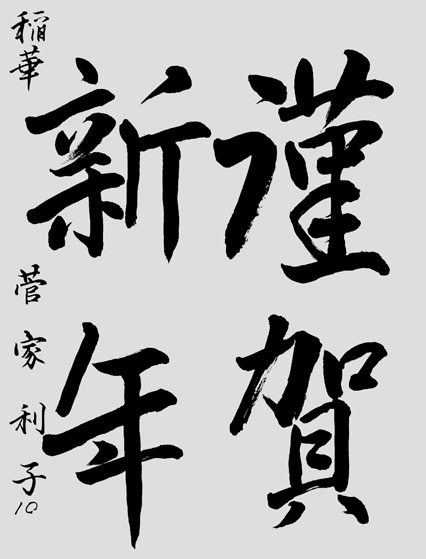 謹賀
新年
稲華
菅家利子
10